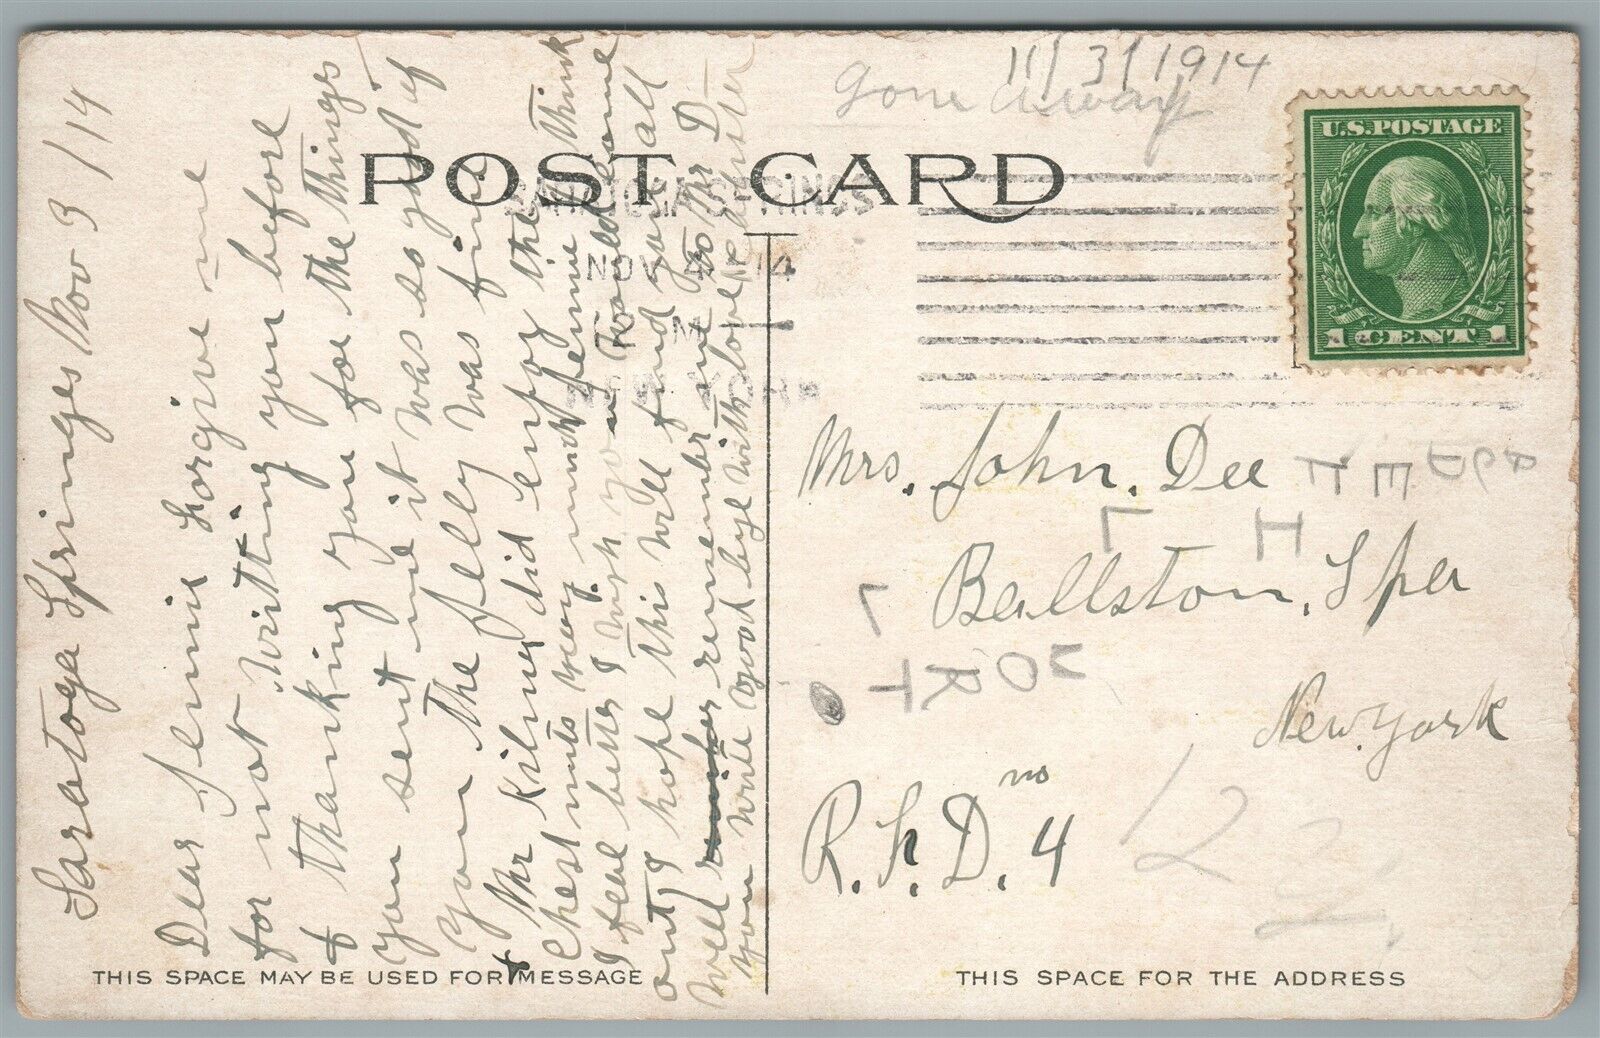 11/3/1914
gone away
POST CARD
SARATOGA SPRINGS
NOV 4 14
U.S. POSTAGE
1 CENT 1
Saratoga Springs Nov 3/14
Dear Jennie Forgive me
for not writting you before
& thanking you for the things
you sent me it was so good of
you The Jelly was fine
& Mr Kilmer did enjoy the
Chestnuts very much Jennie I think
I feel better I wish you would come
out & I hope this will find you all
well remember me to Mr D—
you write Good bye with love
Mrs. John. Dee
Ballston. Spa
New. York
R.F.D. no 4
THIS SPACE MAY BE USED FOR MESSAGE
THIS SPACE FOR THE ADDRESS